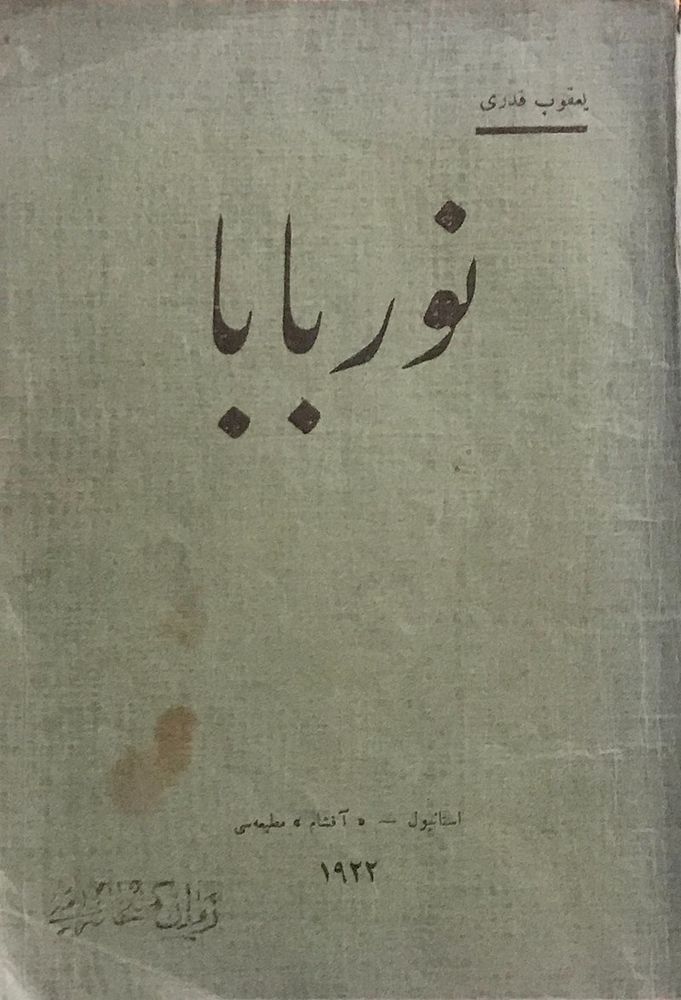 يعقوب قدری
نور بابا
استانبول — « آقشام » مطبعه‌سی
١٩٢٢